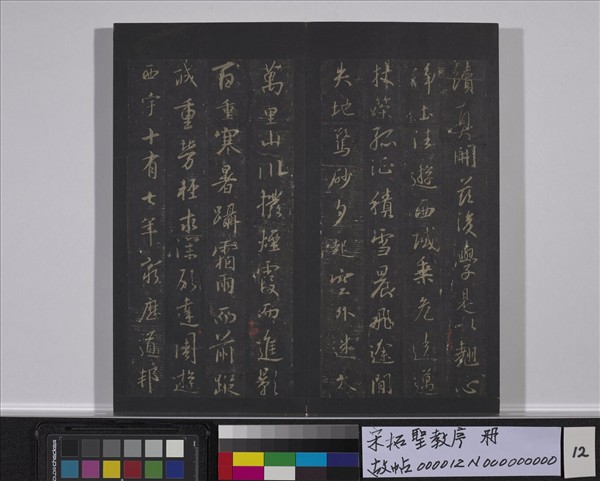 續真開茲後學是以翹心
淨土法遊西域乘危遠邁
杖策孤征積雪晨飛途間
失地驚砂夕起空外迷天
萬里山川撥煙霞而進影
百重寒暑躡霜雨而前蹤
誠重勞輕求深願達周遊
西宇十有七年窮歷道邦
宋拓聖教序 冊
故帖000012N000000000
12